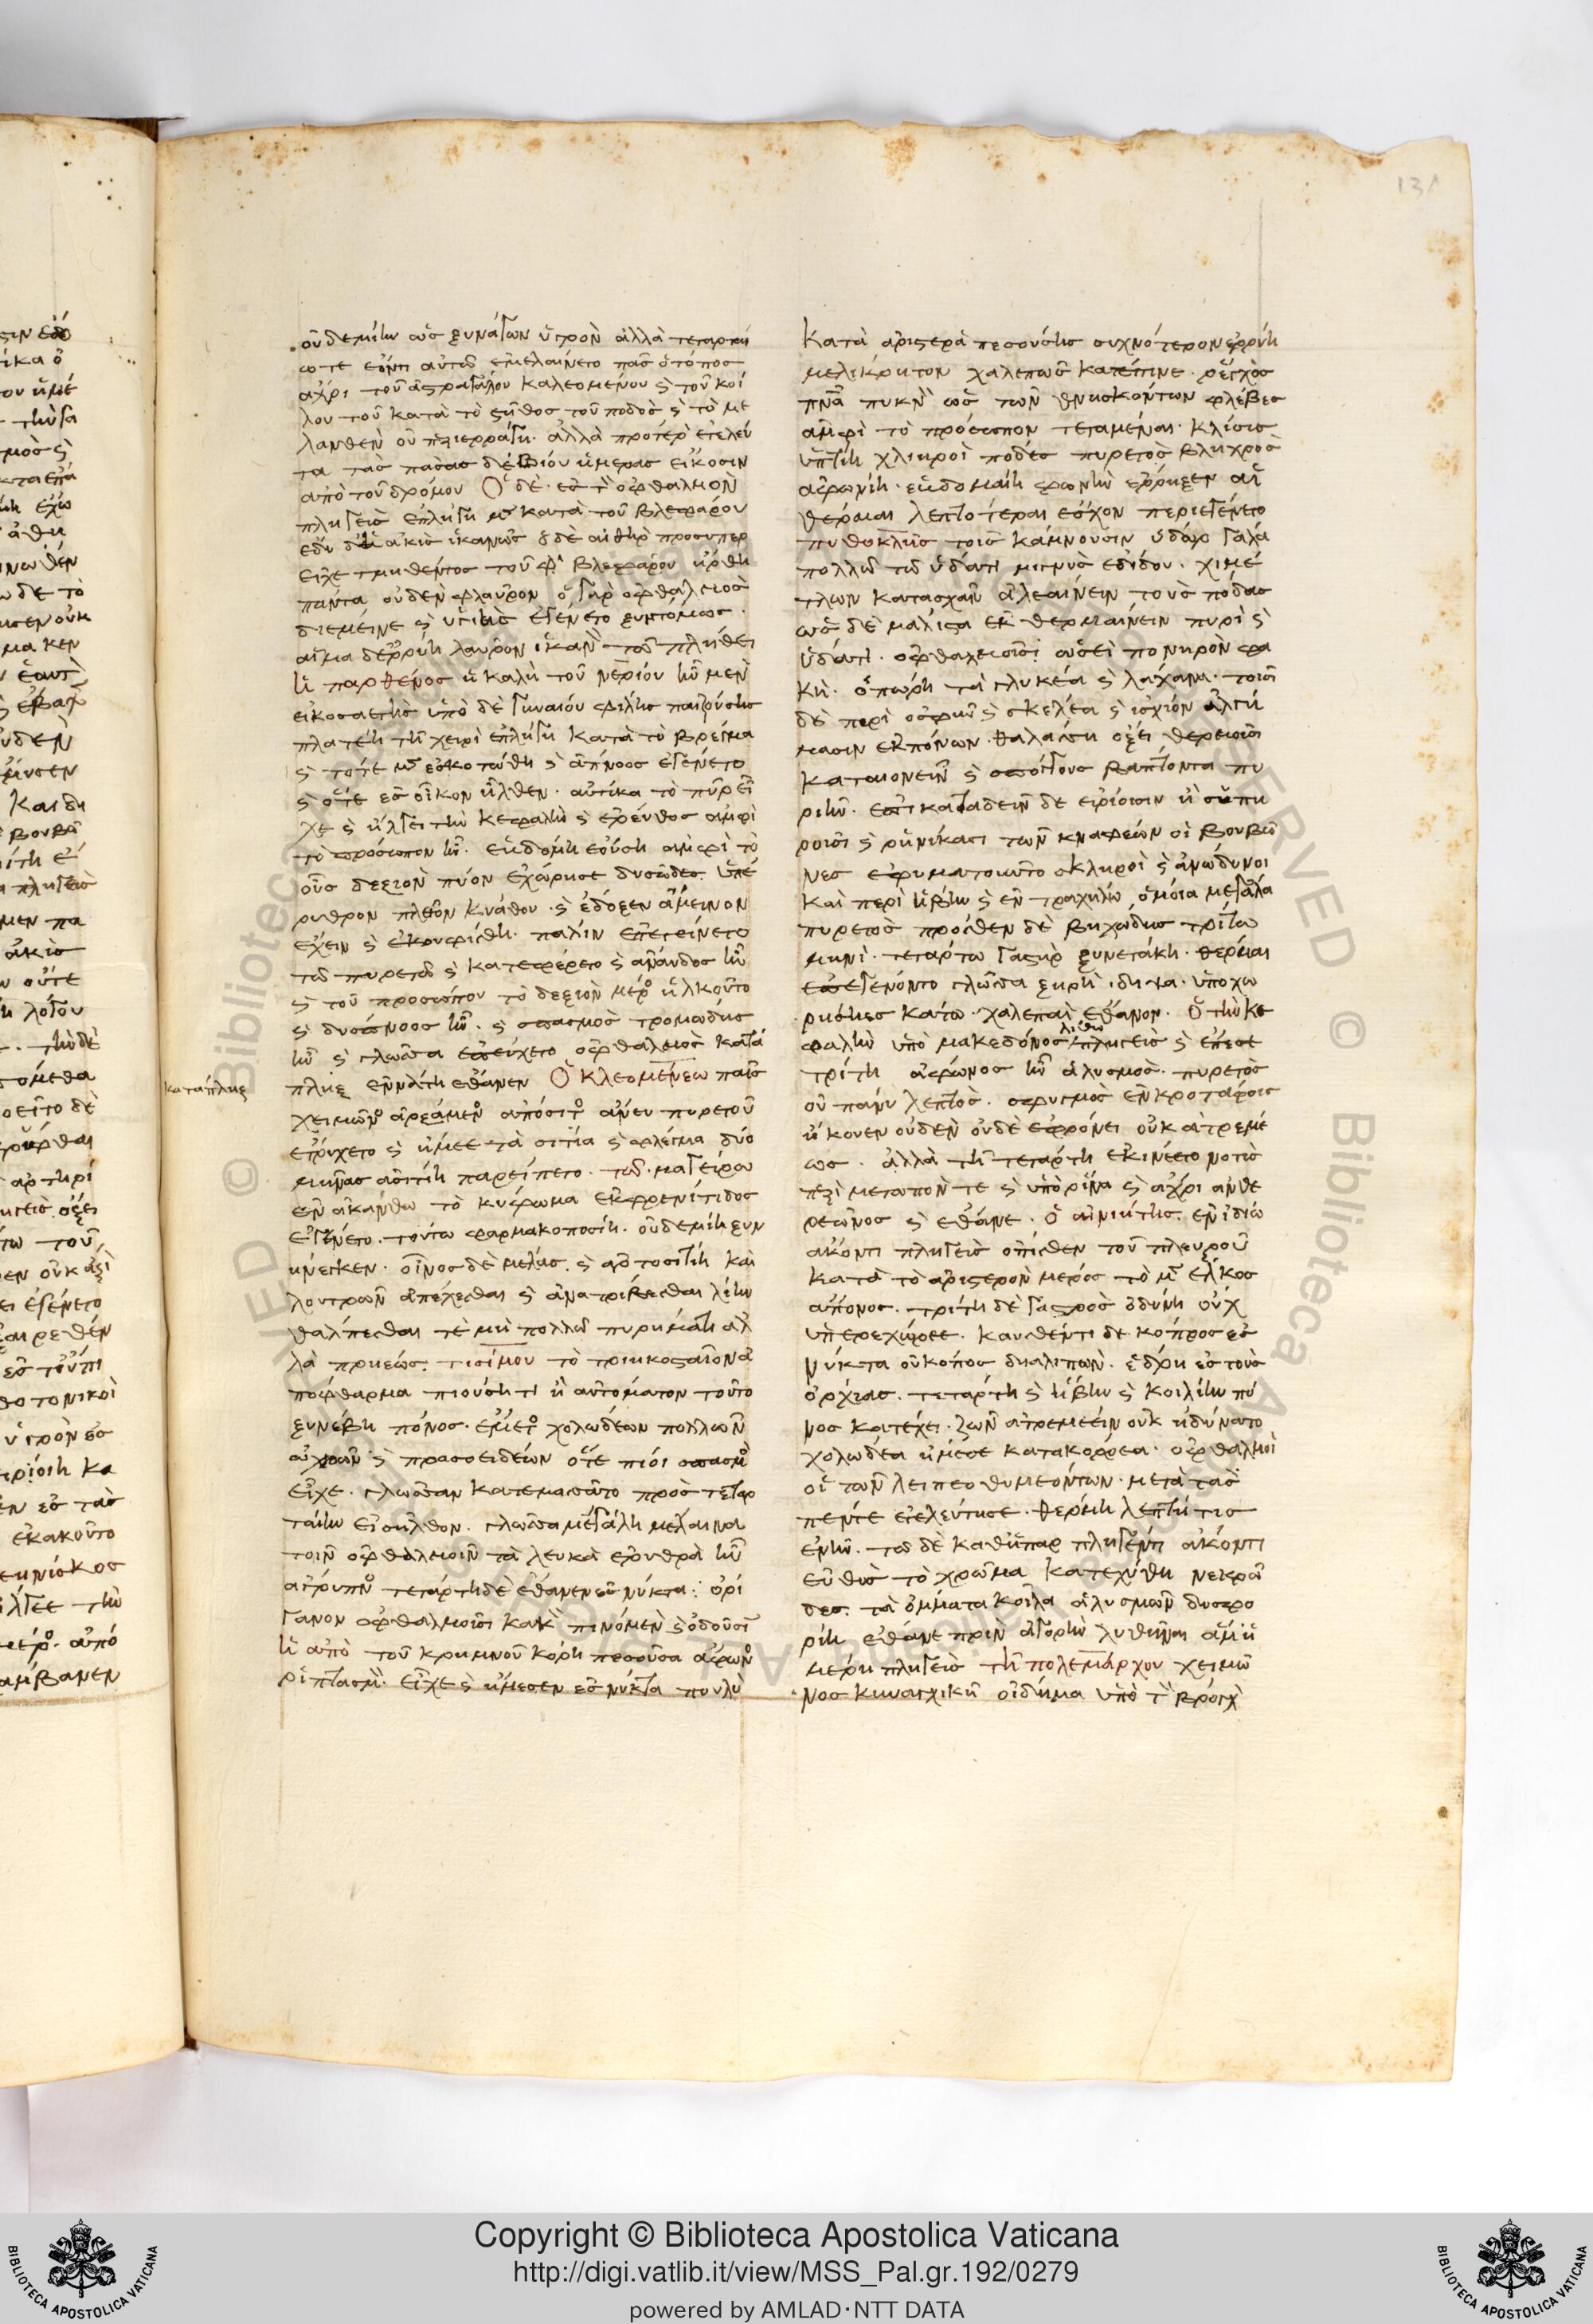 οὐδεμίην ὡς ξυνάγων ὑγρὸν ἀλλὰ τεταρταί
ω τε ἐόντι αὐτῶ ἐμελαίνετο πᾶς ὁ τόπος
ἄχρι τοῦ ἀστραγάλου καλεομένου ϛ τοῦ κοί
λου τοῦ κατὰ τὸ στῆθος τοῦ ποδὸς ϛ τὸ με
λανθὲν οὐ περιερράγη. ἀλλὰ πρότερ ἐτελεύ
τα τὰς πάσας δὲ βιοὺ ἡμέρας εἴκοσιν
ἀπὸ τοῦ δρόμου Ὁ δὲ ἐς τ ὀφθαλμὸν
πληγεὶς ἐπλήγη μ κατὰ τοῦ βλεφάρου
ἔδυ δὲ ἡ ἀκὶς ἱκανῶς ὁ δὲ ἀθὴρ προσυπερ
εῖχε τμηθέντος τοῦ βλεφάρου ἤρθη
πάντα οὐδὲν φλαῦρον ὁ γὰρ ὀφθαλμὸς
διέμεινε ϛ ὑγιὴς ἐγένετο ξυντόμως.
αἷμα δ' ἐρρύη λαῦρον ἱκανὸ τῶ πλήθει
ἡ παρθένος ἡ καλὴ τοῦ νερίου ἦν μὲν
εἰκοσαετὴς ὑπὸ δὲ γυναίου φίλης παιζούσης
πλατέη τῆ χειρὶ ἐπλήγη κατὰ τὸ βρέγμα
ϛ τότε μ ἐσκοτώθη ϛ ἄπνοος ἐγένετο
ϛ ὅτε ἐς οἶκον ἦλθεν. αὐτίκα τὸ πῦρ εἶ
χε ϛ ἤλγει τὴν κεφαλὴν ϛ ἔρευθος ἀμφὶ
τὸ πρόσωπον ἦν. ἑβδόμη ἐούση ἀμφὶ τὸ
οὖς δεξιὸν πύον ἐχώρησε δυσῶδες. ὑπέ
ρυθρον πλεῖον κυάθου. ϛ ἔδοξεν ἄμεινον
ἔχειν ϛ ἐκουφίσθη. πάλιν ἐπετείνετο
τῶ πυρετῶ ϛ κατεφέρετο ϛ ἄναυδος ἦν
ϛ τοῦ προσώπου τὸ δεξιὸν μέρ εἵλκοντο
ϛ δύσπνοος ἦν. ϛ σπασμὸς τρομώδης
ἦν ϛ γλῶσσα ἐπείχετο ὀφθαλμὸς κατά
πληξ ἐννάτη ἔθανεν Ὁ Κλεομένεω παῖς
κατάπληξ
χειμῶν ἀρξάμεν ἀπόσιτ ἄνευ πυρετοῦ
ἐτρύχετο ϛ ἤμεε τὰ σιτία ϛ φλέγμα δύο
μῆνας ἀσιτίη παρείπετο. τῶ μαγείρω
ἐν ἀκάνθω τὸ κύφωμα ἐκ φρενίτιδος
ἐγένετο. τούτω φαρμακοποσίη. οὐδεμίη ξυν
ήνεγκεν. οἶνος δὲ μέλας ϛ ἀρτοσιτίη καὶ
λουτρῶν ἀπέχεσθαι ϛ ἀνατρίβεσθαι λίην
θάλπεσθαι τὲ μὴ πολλῶ πυρήματι ἀλ
λὰ πρηέως. τισίμου τὸ τριηκοσταῖον ἀ
ποφθαρμα πιούση τι ἢ αὐτόματον τοῦτο
ξυνέβη πόνος. ἔμετ χολωδέων πολλῶν
ὠχρῶν ϛ πρασοειδέων ὅτε πίοι σπασμ
εἶχε. γλῶσσαν κατεμασᾶτο πρὸς τεταρ
ταίην εἰσῆλθον. γλῶσσα μεγάλη μέλαινα
τοῖν ὀφθαλμοῖν τὰ λευκὰ ἐρυθρὰ ἦν
ἄγρυπν τετάρτη δὲ ἔθανεν ἐς νύκτα: ὀρί
γανον ὀφθαλμοῖσι κακὸ πινόμεν ϛ ὀδοῦσι
ἡ ἀπὸ τοῦ κρημνοῦ κόρη πεσοῦσα ἄφων
ῥιπτασμ. εἶχε ϛ ἤμεσεν ἐς νύκτα πουλὺ
Κατὰ ἀριστερὰ πεσούσης συχνότερον ἐρρύη
μελίκρητον χαλεπῶς κατέπινε. ῥέγχος
πνα πυκν ὡς τῶν θνησκόντων φλέβες
ἀμφὶ τὸ πρόσωπον τεταμέναι. κλίσις
ὑπτίη χλιηροὶ πόδες πυρετὸς βληχρὸς
ἀφωνίη. ἑβδομαίη φωνὴν ἔρρηξεν αἱ
θέρμαι λεπτότεραι ἔσχον περιεγένετο
πυθοκλῆς τοῖς κάμνουσιν ὕδωρ γάλα
πολλῶ τῶ ὕδατι μιγνὺς ἐδίδου. χιμέ
τλων κατασχᾶν ἀλεαίνειν τοὺς πόδας
ὡς δὲ μάλιστα ἐκθερμαίνειν πυρὶ ϛ
ὕδατι. ὀφθαλμοῖσι ὥστει πονηρὸν φα
κὴ. ὀπώρη τὰ γλυκέα ϛ λάχανα. τοῖσι
δὲ περὶ ὀσφῦν ϛ σκέλεα ϛ ἰσχίον ἀλγή
μασιν ἐκ πόνων θαλάσση ὄξει θερμοῖσι
καταιονεῖν ϛ σπόγγους βάπτοντα πυ
ριῆν. ἐπικαταδεῖν δὲ εἰρίοισιν οἰσυπη
ροῖσι ϛ ῥηνίκαισι τῶν κναφέων οἱ βουβῶ
νες ἐφυματοῦντο σκληροὶ ϛ ἀνώδυνοι
καὶ περὶ ἥβην ϛ ἐν τραχήλω ὅμοια μεγάλα
πυρετὸς πρόσθεν δὲ βηχώδης τρίτω
μηνὶ. τετάρτω γαστὴρ ξυνετάκη. θέρμαι
ἐπεγένοντο γλῶσσα ξηρὴ ὑποχω
ρήσιες κάτω. χαλεπαὶ ἔθανον. Ὁ τὴν κε
φαλὴν ὑπὸ μακεδόνος λίθω πληγεὶς ϛ ἔπεσε
τρίτη ἄφωνος ἦν ἁλυσμὸς. πυρετὸς
οὐ πάνυ λεπτὸς. σφυγμὸς ἐν κροτάφοις
ἤκουεν οὐδὲν οὐδὲ ἐφρόνει οὐκ ἀτρεμέ
ως. ἀλλὰ τῆ τετάρτη ἐκινέετο νοτὶς
περὶ μέτωπόν τε ϛ ὑπὸ ῥῖνα ϛ ἄχρι ἀνθε
ρεῶνος ϛ ἔθανε. ὁ αἰνιήτης. ἐν
ἀκοντι πληγεὶς ὄπισθεν τοῦ πλευροῦ
κατὰ τὸ ἀριστερὸν μέρος τὸ μ ἕλκος
ἄπονος. τρίτη δὲ γαστρὸς ὀδύνη οὐχ
ὑπερεχώρεε. κλυσθέντι δὲ κόπρος ἐς
νύκτα οὐκ ὁ πόνος διαλιπὼν. ἕδρη ἐς τοὺς
ὄρχιας. τετάρτη ϛ ἥβην ϛ κοιλίην πό
νος κατέχει. ζῶν ἀτρεμέειν οὐκ ἠδύνατο
χολώδεα ἤμεσε κατακορέα. ὀφθαλμοὶ
οἷ τῶν λειπεοθυμεόντων. μετὰ τὰς
πέντε ἐτελεύτησε. θέρμη λεπτή τις
ἐνῆν. τῶ δὲ καθ' ἧπαρ πληγέντι ἀκοντι
εὐθὺς τὸ χρῶμα κατεχύθη νεκρῶ
δες. τὰ ὄμματα κοῖλα ἁλυσμῶν δυσφο
ρίη ἔθανε πρὶν ἀγορὴν λυθῆναι ἅμ' ἡ
μέρη πληγεὶς τῆ πολεμάρχου χειμῶ
νος κυναγχικῆ οἴδημα ὑπὸ τ βρόγχ